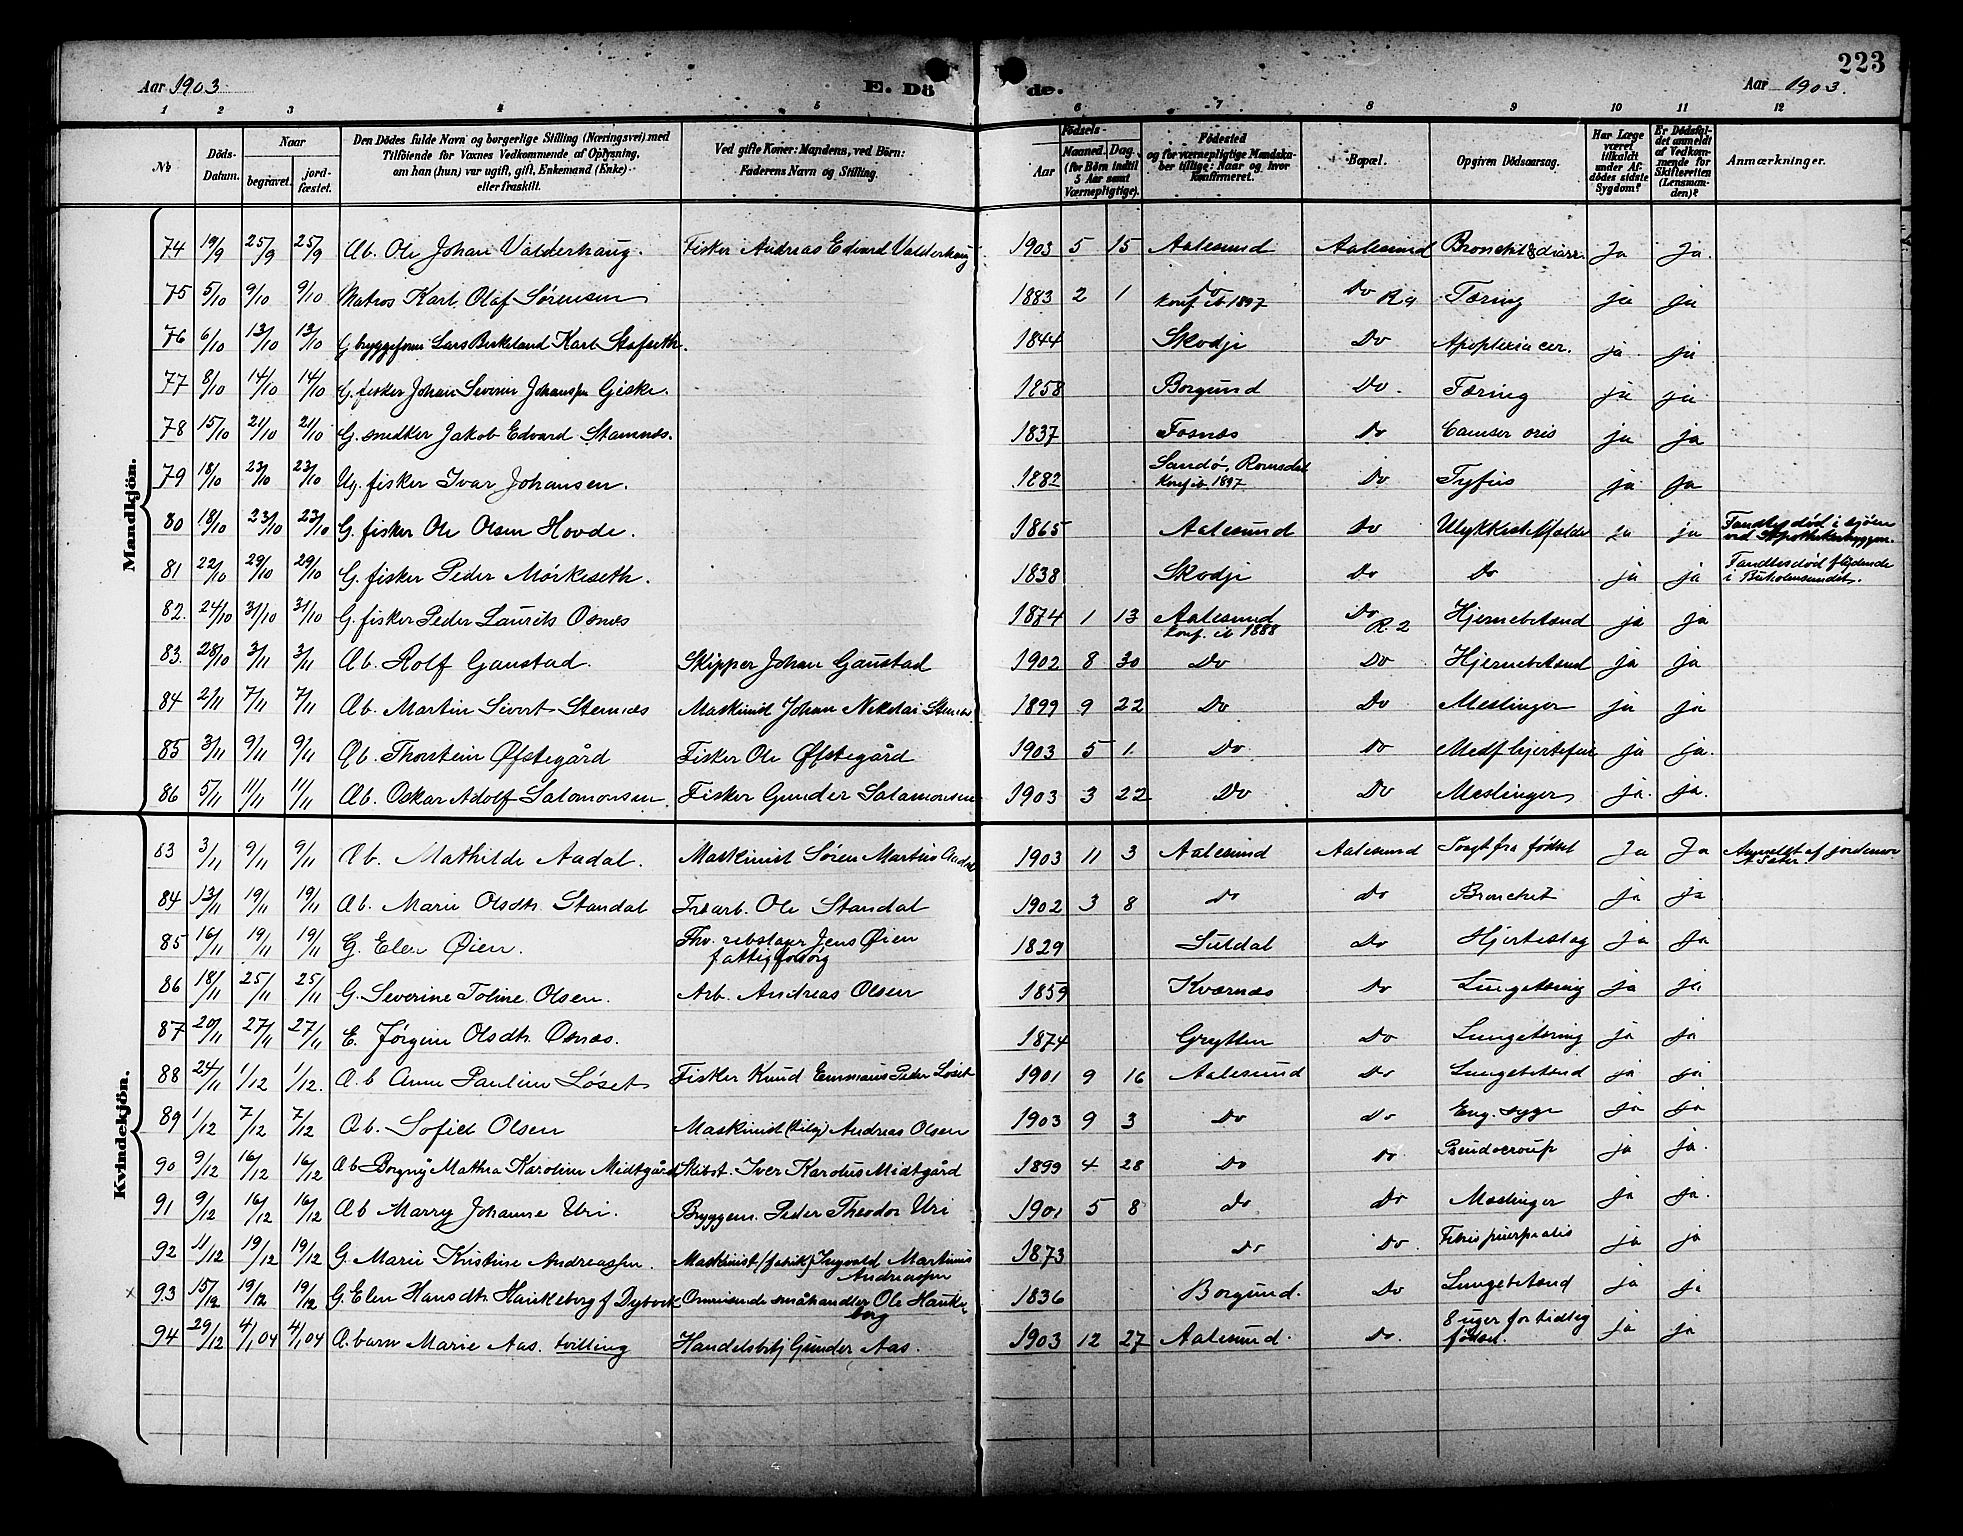 223
Aar 1903.
E. Dö
de.
Aar 1903.
1 2 3 4 5 6 7 8 9 10 11 12
№
Döds-Datum.
Naar
begravet.
jordfæstet.
Den Dödes fulde Navn og borgerlige Stilling (Næringsvei) med
Tilföiende for Voxnes Vedkommende af Oplysning,
om han (hun) var ugift, gift, Enkemand (Enke)
eller fraskilt.
Ved gifte Koner: Mandens, ved Börn:
Faderens Navn og Stilling.
Födsels-
Aar
Maaned. Dag.
(for Börn indtil
5 Aar samt
Værnepligtige).
Födested
og for værnepligtige Mandska-
ber tillige: Naar og hvor
konfirmeret.
Bopæl.
Opgiven Dödsaarsag.
Har Læge
været
tilkaldt
under Af-
dödes sidste
Sygdom?
Er Dödsfal-
det anmeldt
af Vedkom-
mende for
Skifteretten
(Lensman-
den)?
Anmærkninger.
Mandkjön.
74 19/9 25/9 25/9 Æb. Ole Johan Valderhaug. Fisker Andreas Edvard Valderhaug 1903 5 15 Aalesund Aalesund Bronchit & diarr. Ja Ja.
75 5/10 9/10 9/10 Matros Karl Olaf Sørensen 1883 2 1 Do konf. ib 1897 Do R 9 Tæring ja ja
76 6/10 13/10 13/10 G. bryggeform Lars Berkeland Karl Stafseth. 1844 Skodje Do Apoplexia cer. ja ja
77 8/10 14/10 14/10 G. fisker Johan Severin Johanssen Giske. 1858 Borgund Do. Tæring ja ja
78 15/10 21/10 21/10 G. snedker Jakob Edvard Stamnæs. 1837 Fosnæs Do Canser oris ja ja
79 18/10 23/10 23/10 Ug. fisker Ivar Johansen. 1882 Sandø, Romsdal konf. ib. 1897 Do Tyfus ja ja
80 18/10 23/10 23/10 G. fisker Ole Olsen Hovde. 1865 Aalesund Do Ulykkestilfælde ja ja Fandtes død i sjøen ved Apothekerbryggen.
81 22/10 29/10 29/10 G. fisker Peder Mørkeseth. 1838 Skodje Do Do ja ja Fandtes død flydende i Buholmsundet.
82. 24/10 31/10 31/10 G. fisker Peder Laurits Osnæs 1874 1 13 Aalesund konf. ib 1888 Do R. 2 Hjernebetænd ja ja
83. 28/10 3/11 3/11 Æb. Rolf Gaustad. Skipper Johan Gaustad 1902 8 30 Do Do Hjernebetænd ja ja
84 2/11 7/11 7/11 Æb. Martin Sivert Stenæs Maskinist Johan Nikolai Stenæs 1899 9 22 Do Do Meslinger ja ja
85 3/11 9/11 9/11 Æb. Thorstein Øfstegård Fisker Ole Øfstegård 1903 5 1. Do Do Medf hjertefeil ja ja.
86 5/11 11/11 11/11 Æb. Oskar Adolf Salomonsen Fisker Gunder Salamonsen 1903 3 22 Do Do Meslinger ja. ja.
Kvindekjön.
83 3/11 9/11 9/11 Æb. Mathilde Aadal. Maskinist Søren Martin Aadal 1903 11 3 Aalesund Aalesund Svagt fra fødsel Ja Ja Anmeldt af jordemor
84 13/11 19/11 19/11 Æb. Marie Olsdtr. Standal Ole Standal 1902 3 8 Do Do Bronchit ja ja
85 16/11 19/11 19/11 G. Elen Øien. Fhv. rebslager Jens Øien fattigforsørg 1829 Suldal Do Hjerteslag ja ja
86 18/11 25/11 25/11 G. Severine Toline Olsen. Arb. Andreas Olsen 1859 Kværnæs Do Lungetæring ja ja
87 20/11 27/11 27/11 E. Jørgine Olsdtr. Osnæs. 1874 Grytten Do Lungetæring ja ja
88 24/11 1/12 1/12. Æ.b Anne Pauline Løset Fisker Knud Emmaus Peder Løset 1901 9 16 Aalesund Do Lungebetænd ja ja
89 1/12 7/12 7/12 Æb. Sofie Olsen Maskinist Andreas Olsen 1903 9 3 Do Do Eng. syge ja ja
90 9/12 16/12 16/12 Æb Borgny Mathea Karoline Midtgård Skibst. Iver Karolus Midtgård 1899 4 28 Do Do Pseudocroup ja ja.
91 9/12 16/12 16/12 Æb Marry Johanne Uri. Bryggem. Peder Theodor Uri 1901 5 8 Do Do Meslinger ja ja.
92 11/12 19/12 19/12 G. Marie Kristine Andreassen. Maskinist (fabrik) Ingvald Martinus Andreassen 1873 Do Do. Febris puerperalis ja ja
x 93 15/12 19/12 19/12 G. Elen Hansdtr. Haukeberg f. Dybvik Omreisende småhandler Ole Haukeberg 1836 Borgund. Do Lungebetænd ja ja
94 29/12 4/1 04 4/1 04 Æ. barn Marie Aas. tvilling Handelsbetj Gunder Aas. 1903 12 27 Aalesund. Do. 8 uger for tidlig født. ja ja